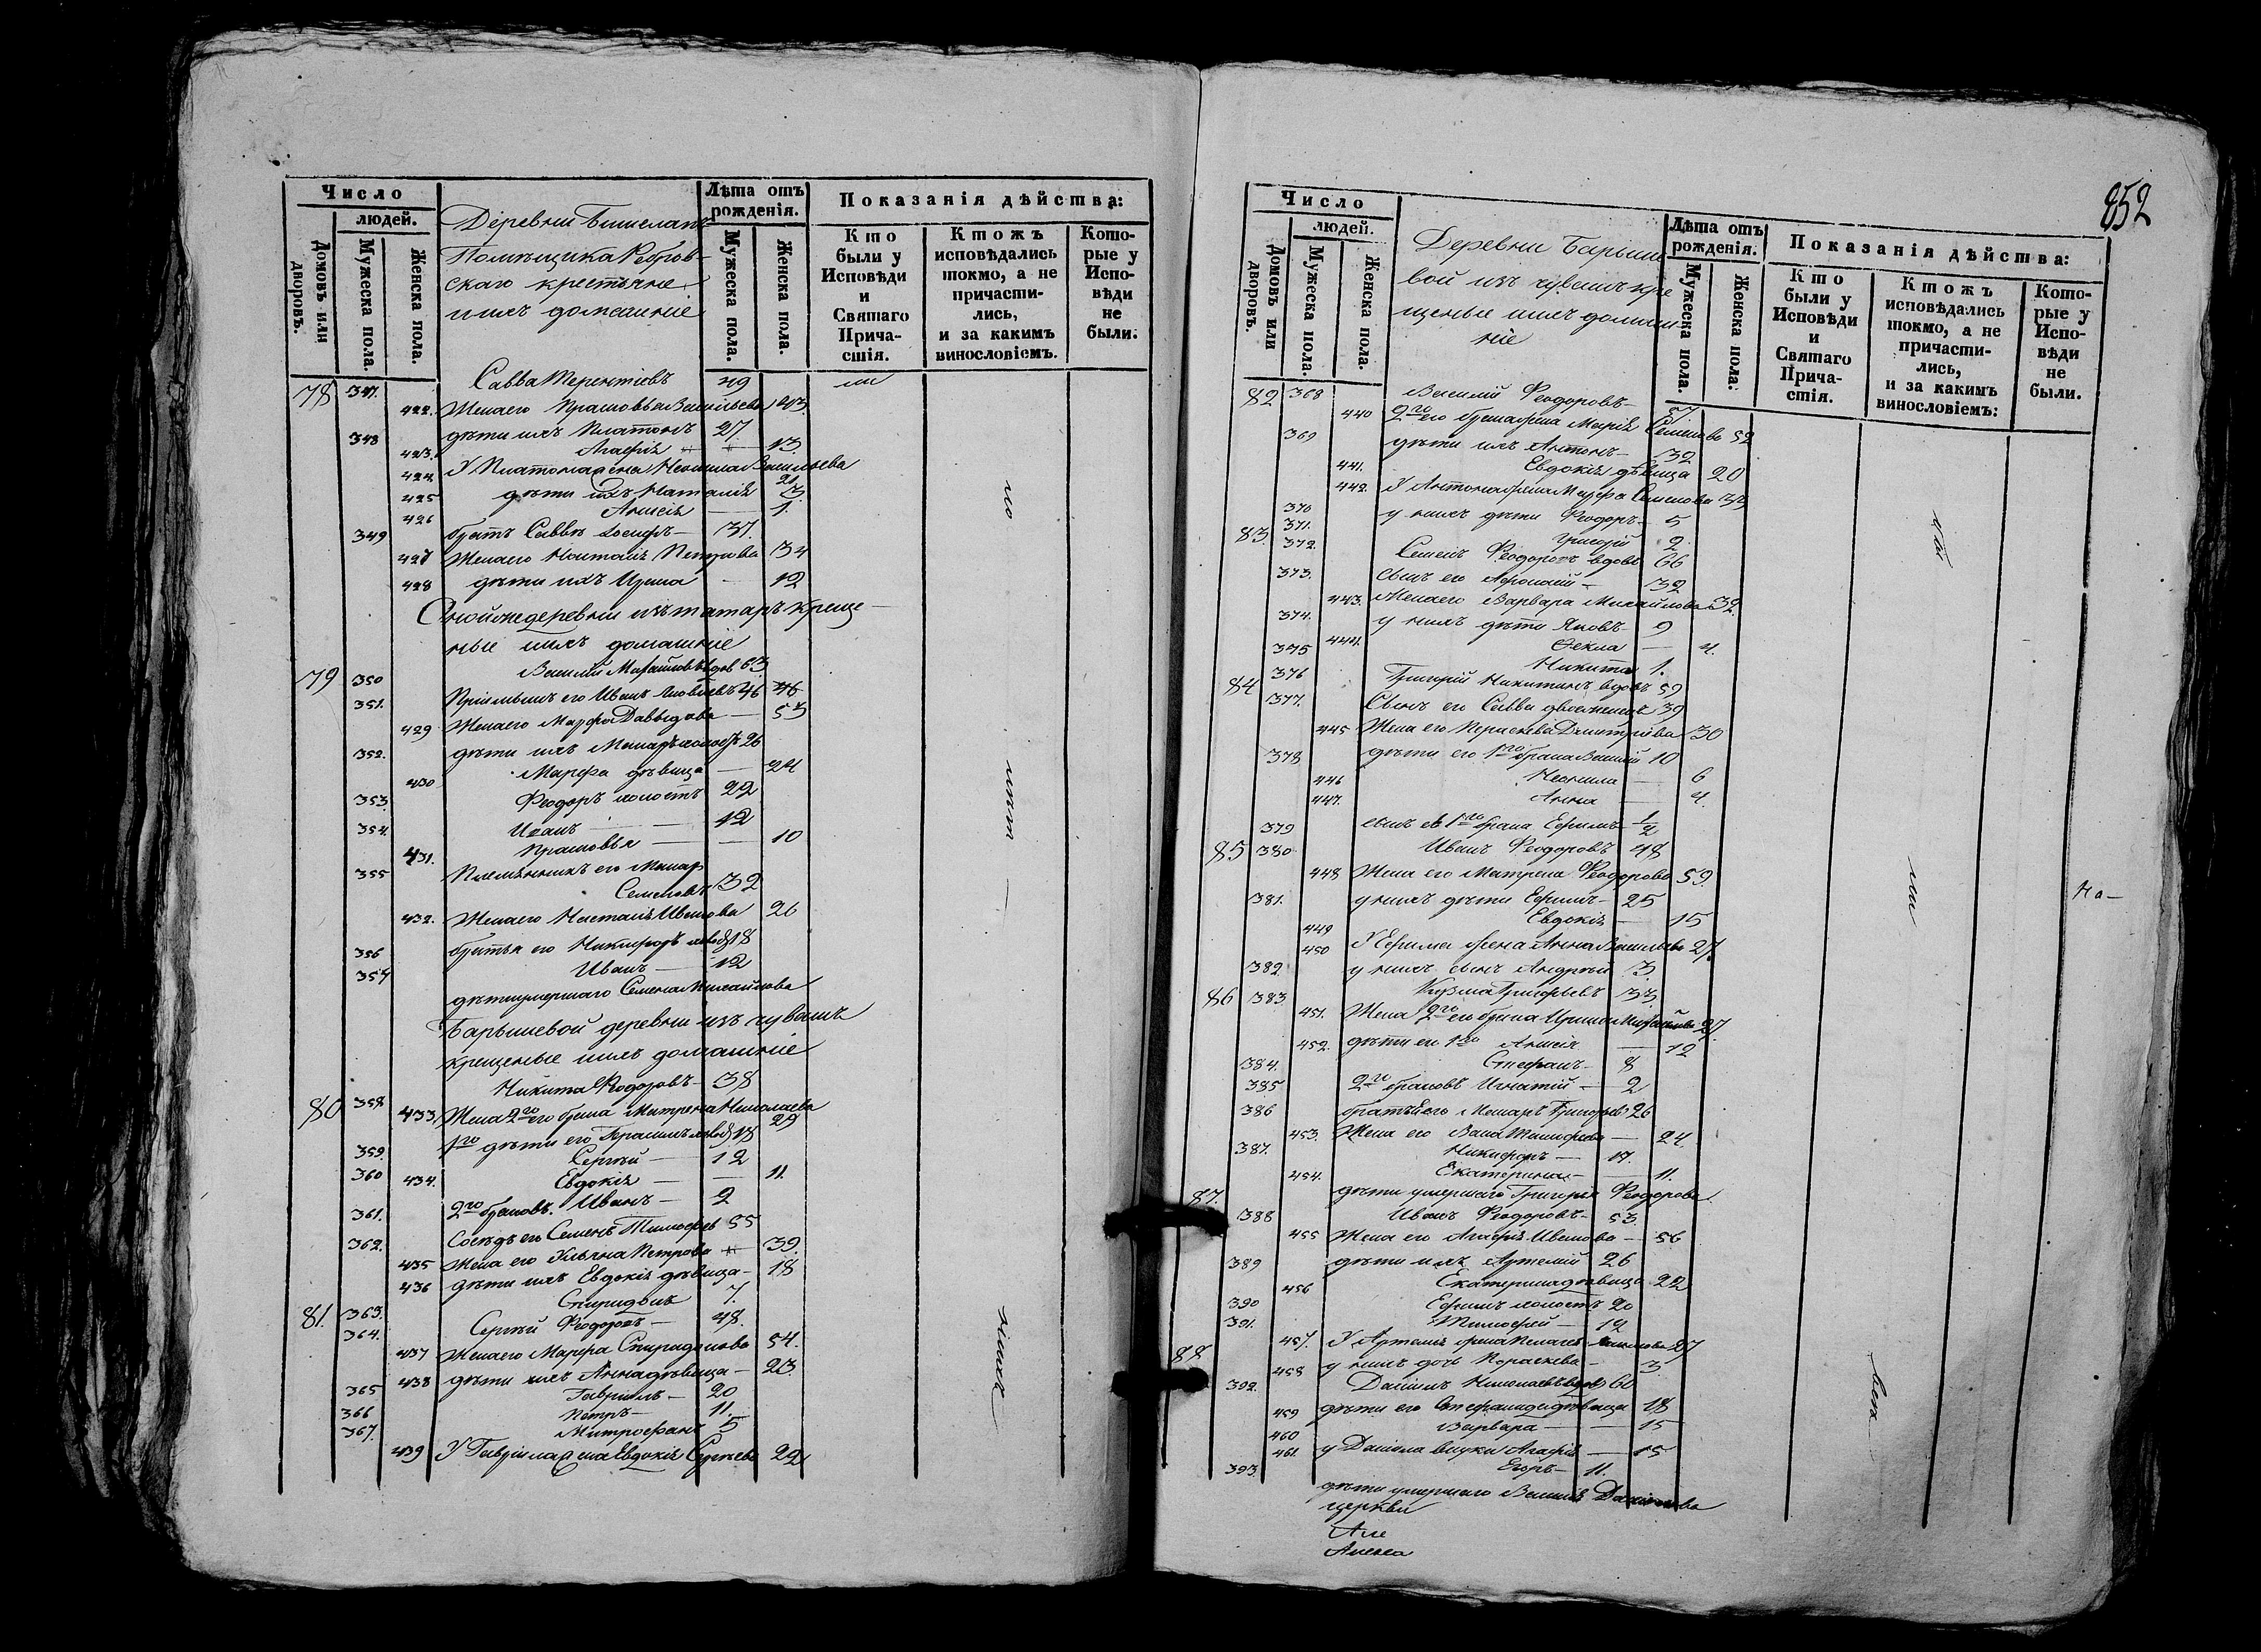 Число
людей.
Домовъ или дворовъ.
Мужеска пола.
Женска пола.
Деревни
Помѣщика Ребров-
скаго крестьяне
и ихъ домашніе
Лѣта отъ рожденія.
Мужеска пола.
Женска пола.
Показанія дѣйства:
Кто были у Исповѣди и Святаго Прича-стія.
Ктожъ исповѣдались токмо, а не причасти-лись, и за какимъ винословіемъ.
Кото-рые у Испо-вѣди не были.
78 347. Савва Терентіевъ 49
422. Жена его Прасковья Васильева 43
348 дѣти ихъ Платонъ 27.
423. Агафія 13.
424 У Платона жена Неонила Васильева 21
425 дѣти ихъ Наталія 3.
426 Анисія 1.
349 братъ Саввы Іосифъ 37.
427 Жена его Наталія Петрова 34
428 дѣти ихъ Ирина 12
Оной же деревни изъ татаръ креще-
ные и ихъ домашніе
79 350 Василій Михайловъ вдов 63
351. Пріемышъ его Иванъ Яковлевъ 46
429 Жена его Марфа Давыдова 53
352. дѣти ихъ Макаръ холостъ 26
430 Марфа дѣвица 24
353. Феодоръ холостъ 22
354. Иванъ 12
431. Прасковья 10
355 Племянникъ его Макар
Семеновъ 32
432. Жена его Наталія Иванова 26
356 братья его Никифоръ холост 18
357 Иванъ 12
дѣти умершаго Семена Михайлова
Барышевой деревни изъ чувашъ
крещеные и ихъ домашніе
80 358 Никита Феодоровъ 38
433. Жена 2го его брака Матрена Николаева 29
359. 1го дѣти его Герасимъ холост 18
360 Сергѣй 12
434. Евдокія 11.
361. 2го браковъ. Иванъ 2
362. Сосѣдъ его Семенъ Тимофеев 55
435 Жена его Ульяна Петрова 39.
436 дѣти ихъ Евдокія дѣвица 18
363. Спиридонъ 7.
81. 364. Сергѣй Феодоровъ 48.
437 Жена его Марфа Спиридонова 54.
438 дѣти ихъ Анна дѣвица 23.
365 Гавріилъ 20
366 Петръ 11.
367. Митрофанъ 5
439 У Гавріила жена Евдокія Сергѣева 22
852
Число
людей.
Домовъ или дворовъ.
Мужеска пола.
Женска пола.
Деревни Барыше
вой изъ чувашъ кре
щеные и ихъ домаш
ніе
Лѣта отъ рожденія.
Мужеска пола.
Женска пола.
Показанія дѣйства:
Кто были у Исповѣди и Святаго Прича-стія.
Ктожъ исповѣдались токмо, а не причасти-лись, и за какимъ винословіемъ:
Кото-рые у Испо-вѣди не были.
82 368 Василій Феодоровъ 57
440 2го его брака жена Марія Семенова 52
369 дѣти ихъ Антонъ 32
441. Евдокія дѣвица 20
442. У Антона жена Марфа Семенова 33
370 у нихъ дѣти Феодоръ 5
371. Григорій 2.
83. 372. Семенъ Феодоровъ вдовъ 66
373. сынъ его Афонасій 32
443. Жена его Варвара Михайлова 32.
374. у нихъ дѣти Яковъ 9
444. Фекла 4.
375 Никита 1.
84 376 Григорій Никитинъ вдовъ 59
377. Сынъ его Савва двоеженецъ 39
445 Жена его Параскева Дмитріева 30
378 дѣти его 1го брака Василій 10
446 Неонила 6
447. Анна 4.
379 сынъ его 1го брака Ефимъ 1/2
85 380 Иванъ Феодоровъ 48
448 Жена его Матрена Феодорова 59.
381. у нихъ дѣти Ефимъ 25
449 Евдокія 15
450 У Ефима жена Анна Васильева 27.
382. у нихъ сынъ Андрей 3.
86 383. Кузма Григорьевъ 33.
451. Жена 2го его брака Ирина Михайлова 27
452. дѣти его 1го Анисія 12
384. Стефанъ 8
385. 2го браковъ Игнатій 2
386 братья его Макаръ Григорьев 26
453. Жена его Васа Тимофеева 24.
387. Никифоръ 17.
454. Екатерина 11.
дѣти умершаго Григорія Феодорова
87. 388 Иванъ Феодоровъ 53.
455 Жена его Агафія Иванова 56
389 дѣти ихъ Артемій 26
456 Екатерина дѣвица 22
390 Ефимъ холостъ 20
391. Тимофей 12
457. У Артемія жена Пелагея 27
458 у нихъ дочь Параскева 3.
88 392. Даніилъ Николаевъ вдов 60
459 дѣти его Стефанида дѣвица 18
460 Варвара 15
461. у Даніила внуки Агафія 15
393. Егоръ 11.
дѣти умершаго Василія Данилова
церкви
Але
Алекса